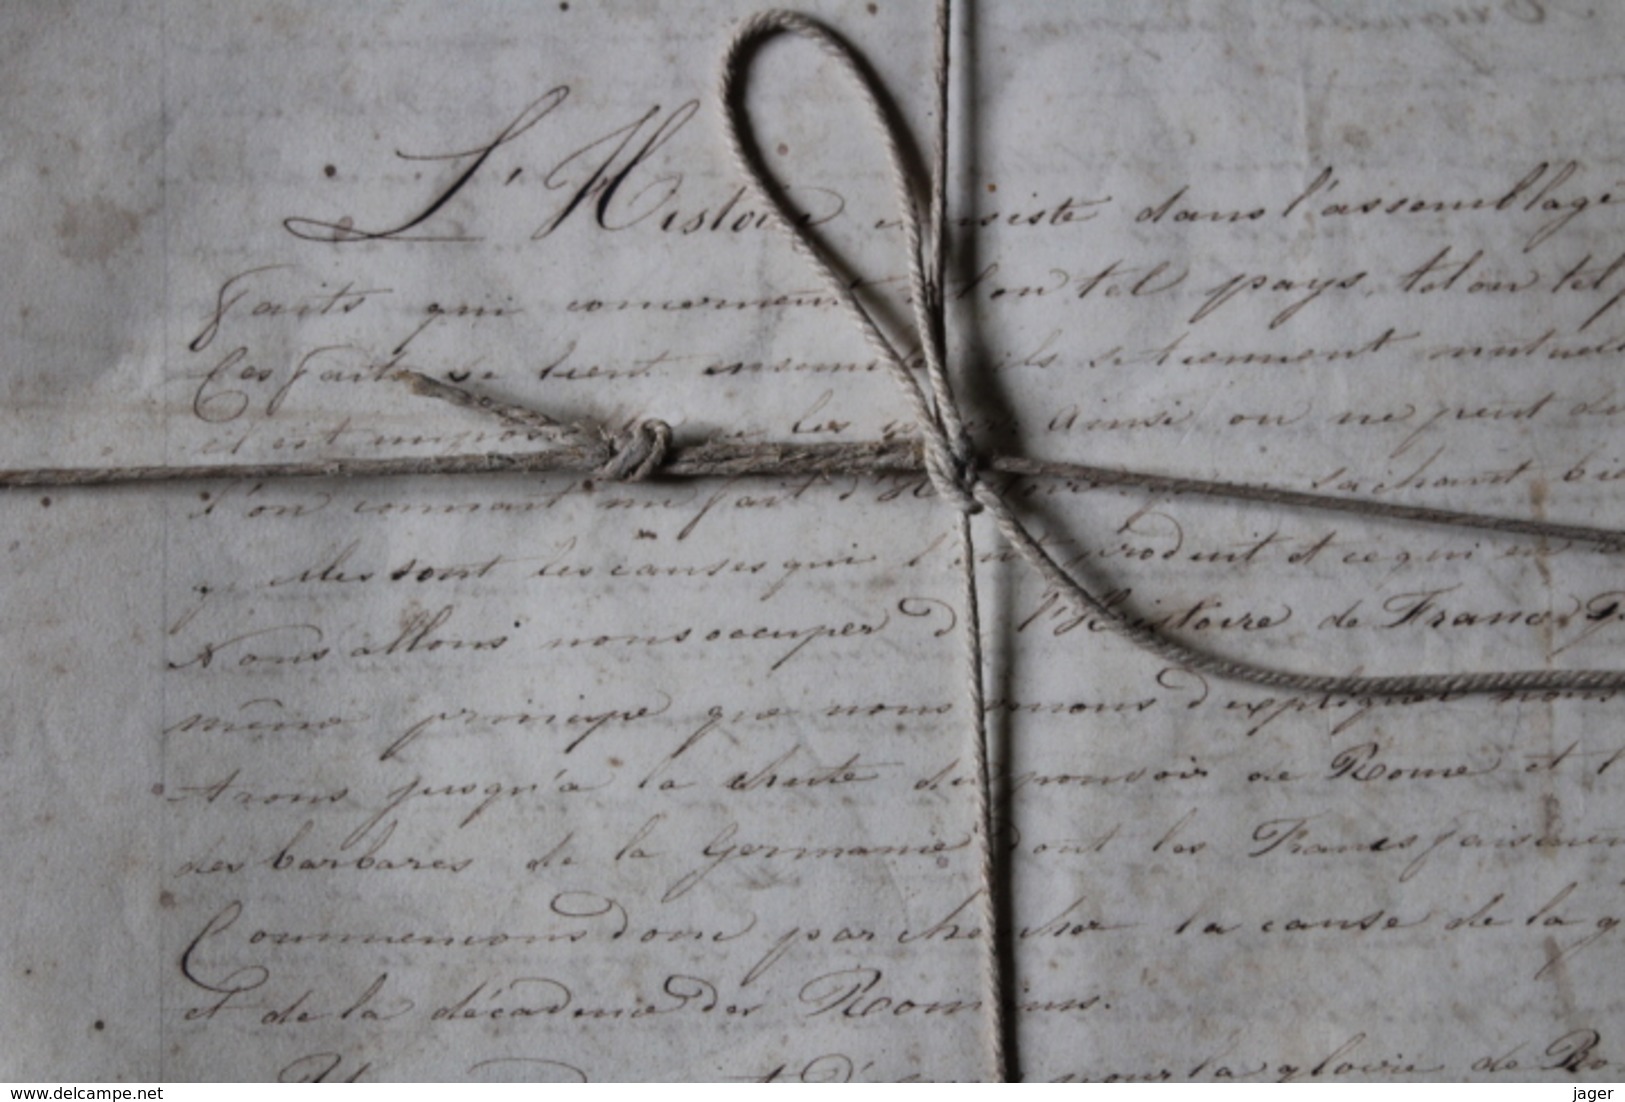 L'Histoire consiste dans l'assemblage
faits qui concernent tel ou tel pays, tel ou tel
Ces faits se lient ensemble ils se tiennent mutuel
et est les uns Ainsi on ne peut
l'on connait un fait d'Histoire qu'en sachant bie
quelles sont les causes qui l'ont produit et ce qui en
Nous allons nous occuper de l'Histoire de France
même principe que nous venons d'expliquer nous
trons jusqu'à la chute du pouvoir de Rome et
des barbares de la Germanie dont les Francs faisaien
Commencons donc par chercher la cause de la g
et de la décadence des Romains.
pour la gloire de Ro
delcampe.net
jager